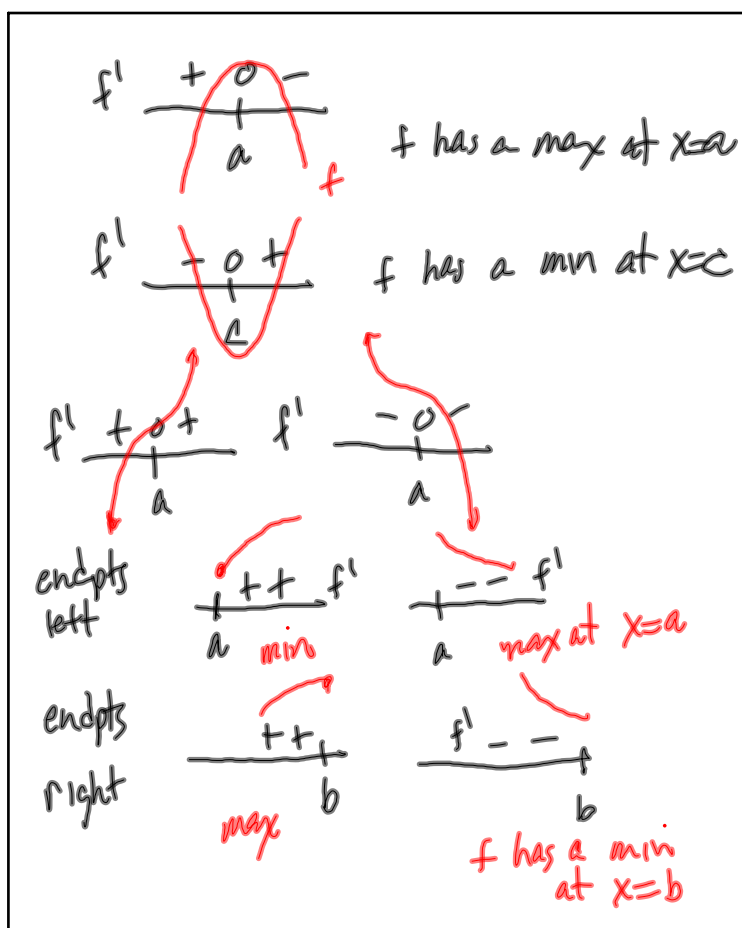 f' + 0 -
a
f has a max at x=a
f
f' - 0 +
c
f has a min at x=c
f' + 0 +
a
f' - 0 -
a
endpts
left
+ + f'
a
min
- - f'
a
max at x=a
endpts
right
+ +
b
max
f' - -
b
f has a min
at x=b